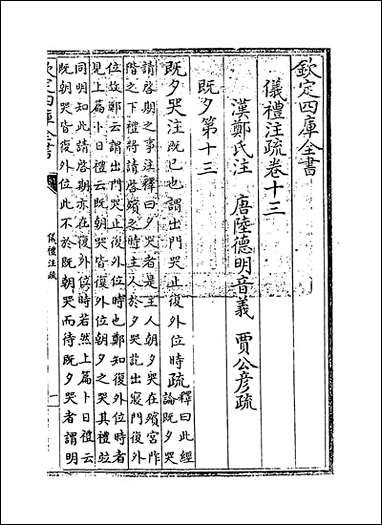 欽定四庫全書
儀禮注疏卷十三
漢鄭氏注　唐陸德明音義　賈公彦疏
既夕第十三
既夕哭注既已也謂出門哭止復外位時疏釋曰此經
論既夕哭
請啓期之事注釋曰夕哭者是主人朝夕哭在殯宮阼
階之下禮將請啓殯之時主人於夕哭訖出寢門復外
位故鄭云謂出門哭止復外位時也鄭知復外位時者
見上篇卜日禮云既朝哭皆復外位朝夕之哭其禮竝
同明知此請啓期亦在復外位時若然上篇卜日禮云
既朝哭皆復外位此不於既朝哭而待既夕哭者謂明
欽定四庫全書
儀禮注疏
一